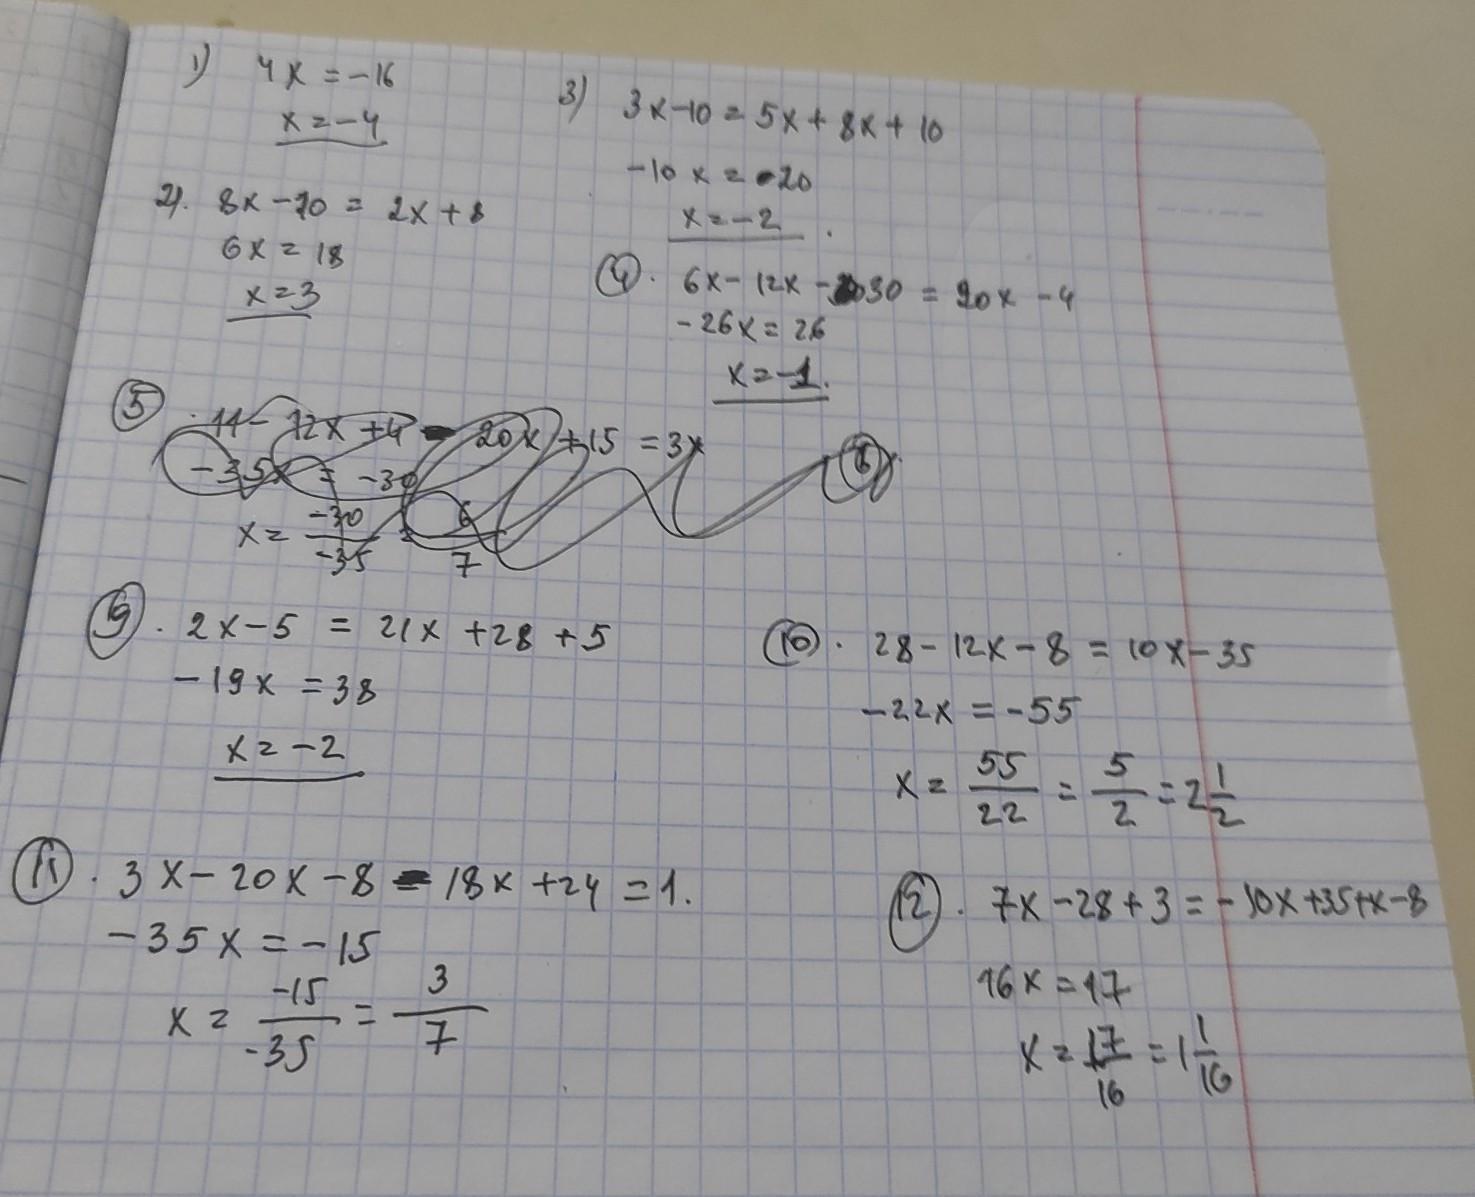 1) 4x = -16
x = -4
2). 8x - 10 = 2x + 8
6x = 18
x = 3
3) 3x - 10 = 5x + 8x + 10
-10x = 20
x = -2
4. 6x - 12x - 30 = 20x - 4
-26x = 26
x = -1.
5 11 - 12x + 4 - 20x + 15 = 3x
-35x = -30
x = \frac{-30}{-35} = \frac{6}{7}
9. 2x - 5 = 21x + 28 + 5
-19x = 38
x = -2
10. 28 - 12x - 8 = 10x - 35
-22x = -55
x = \frac{55}{22} = \frac{5}{2} = 2\frac{1}{2}
11. 3x - 20x - 8 - 18x + 24 = 1.
-35x = -15
x = \frac{-15}{-35} = \frac{3}{7}
12. 7x - 28 + 3 = -10x + 35 + x - 8
16x = 17
x = \frac{17}{16} = 1\frac{1}{16}